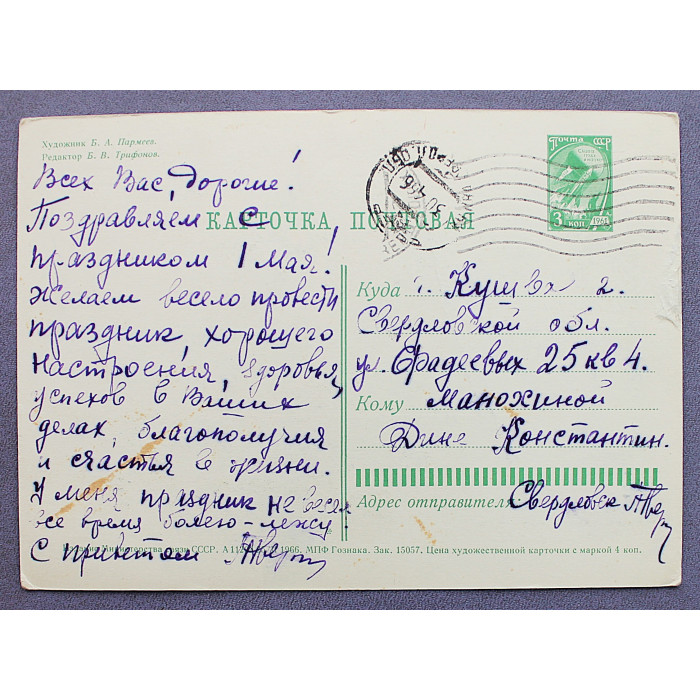 Художник Б. А. Пармеев.
Редактор Б. В. Трифонов.
Всех Вас, Дорогие!
Поздравляем с
праздником 1 Мая!
Желаем весело провести
праздник, хорошего
настроения, здоровья,
успехов в Ваших
делах, благополучия
и счастья в жизни.
У меня праздник не весел
все время болею-лежу!
С приветом
КАРТОЧКА ПОЧТОВАЯ
ПОЧТА СССР
3 коп. 1961
Куда г. Кушва 2.
Свердловской обл.
ул. Фадеевых 25 кв 4.
Кому Манохиной
Дине Константин.
Адрес отправителя: Свердловск
Издание Министерства связи СССР. 1966. МПФ Гознака. Зак. 15057. Цена художественной карточки с маркой 4 коп.